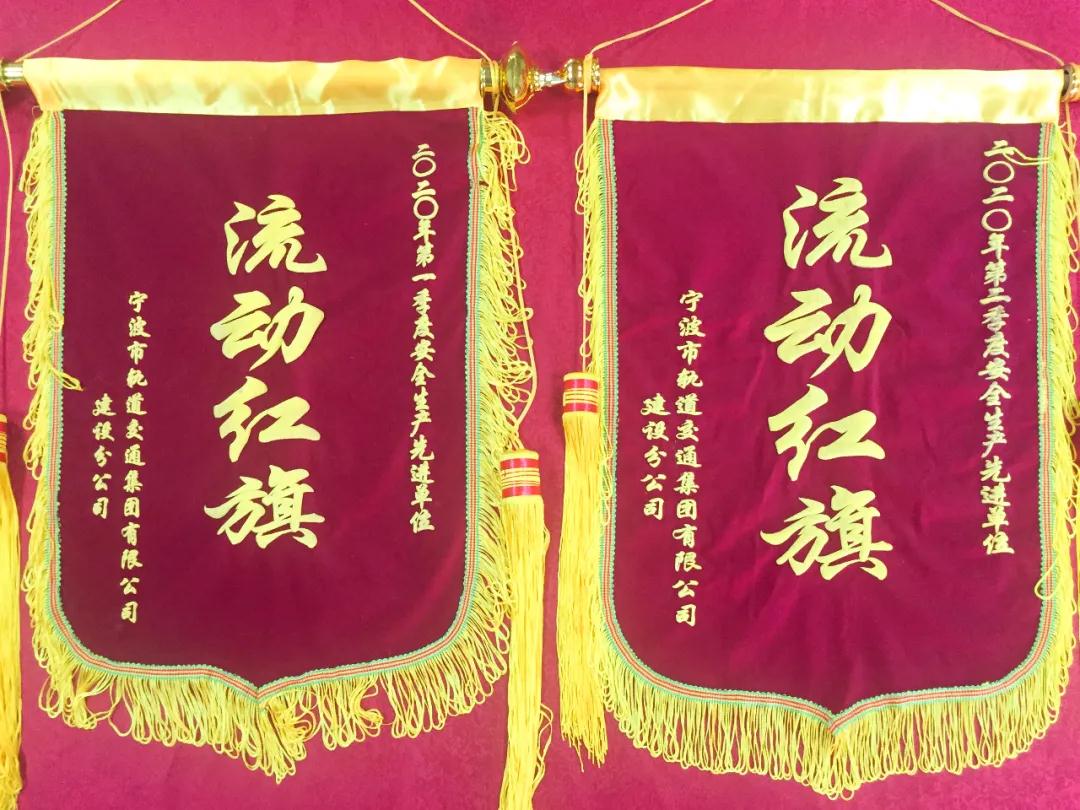 二〇二〇年第一季度安全生产先进单位
流动红旗
宁波市轨道交通集团有限公司
建设分公司
二〇二〇年第二季度安全生产先进单位
流动红旗
宁波市轨道交通集团有限公司
建设分公司